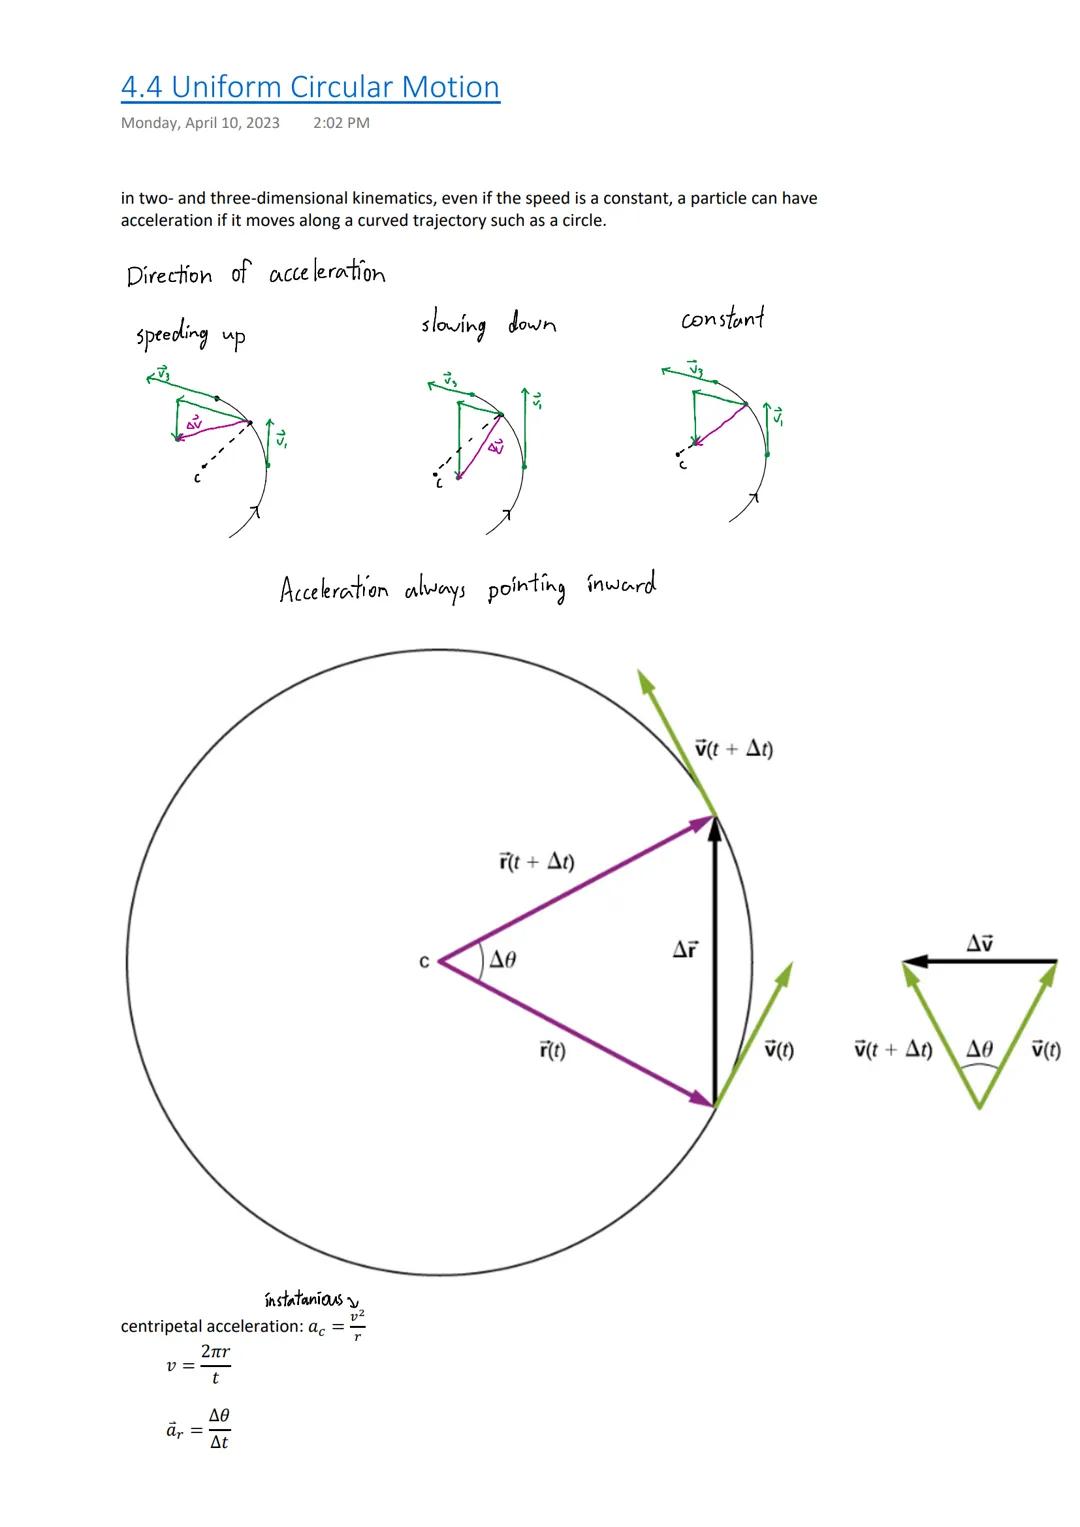 4.4 Uniform Circular Motion
Monday, April 10, 2023 2:02 PM
in two- and three-dimensional kinematics, even if the speed is a constant, a particle can have
acceleration if it moves along a curved trajectory such as a circle.
Direction of acceleration
speeding up
slowing down
constant
v⃗₃
Δv⃗
v⃗₁
c
v⃗₃
v⃗₁
Δv⃗
c
v⃗₃
v⃗₁
c
Acceleration always pointing inward
v⃗(t + Δt)
r⃗(t + Δt)
Δr⃗
Δv⃗
c
Δθ
r⃗(t)
v⃗(t)
v⃗(t + Δt)
Δθ
v⃗(t)
instatanious
centripetal acceleration: a_c = v²/r
v = 2πr/t
a⃗_r = Δθ/Δt